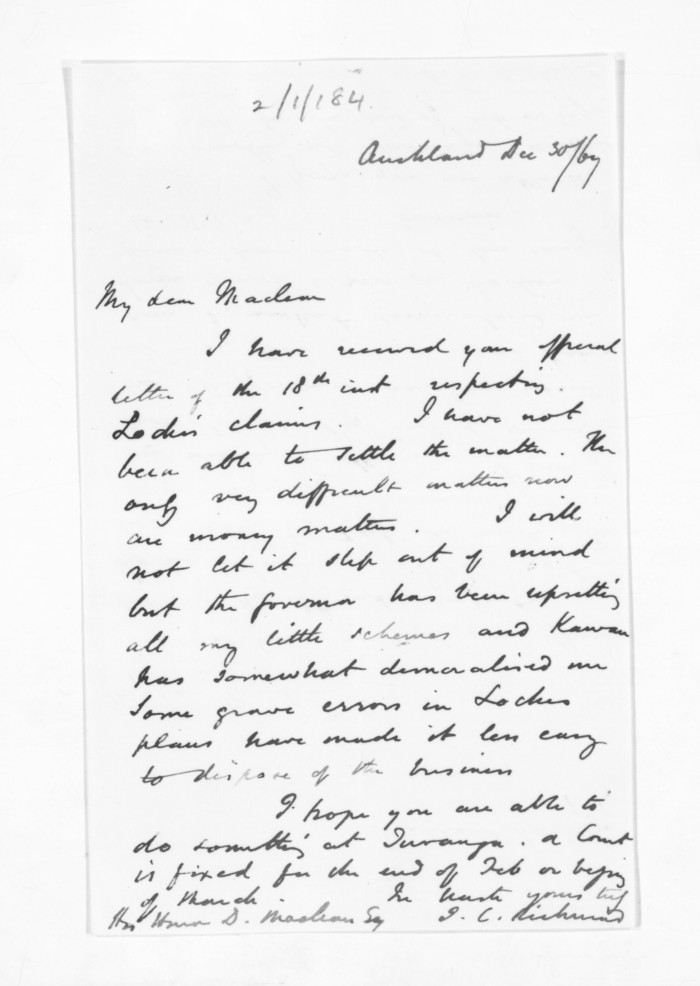 2/1/184.
Auckland Dec 30/67
My dear Maclean
I have received your official
letter of the 18th inst respecting
Lockes claims. I have not
been able to settle the matter. The
only very difficult matters now
are money matters. I will
not let it slip out of mind
but the Governor has been upsetting
all my little schemes and Kawau
has somewhat demoralised me
Some grave errors in Lockes
plans have made it less easy
to dispose of the business
I hope you are able to
do something at Turanga. A Court
is fixed for the end of Feb or beging
of March. In haste yours truly
His Honor D. Maclean Esq J. C. Richmond